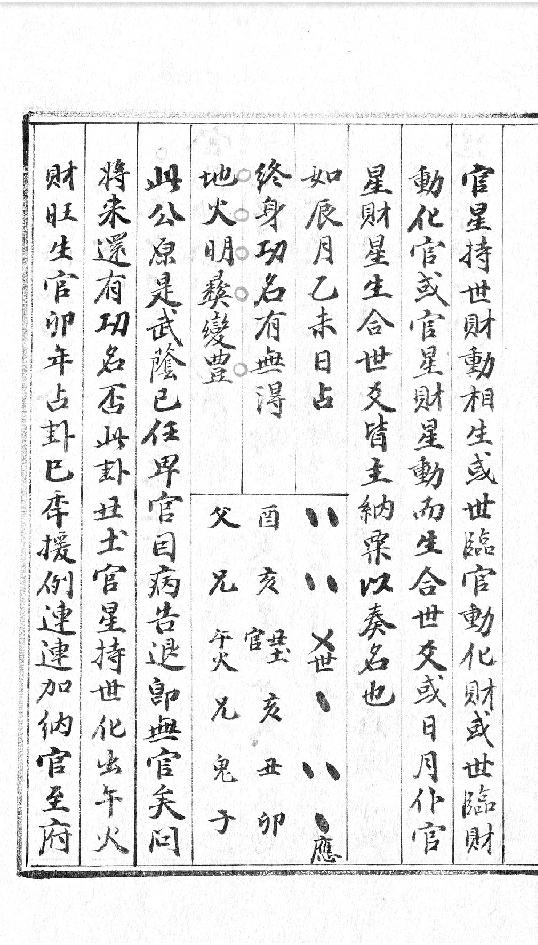 官星持世財動相生或世臨官動化財或世臨財
動化官或官星財星動而生合世爻或日月作官
星財星生合世爻皆主納粟以奏名也
如辰月乙未日占
終身功名有無得
地火明夷變豊
世
應
酉 亥 丑土 亥 丑 卯
官
父 兄 午火 兄 鬼 子
此公原是武蔭已任卑官因病告退即無官矣问
將来還有功名否此卦丑土官星持世化出午火
財旺生官卯年占卦巳年援例連連加納官至府